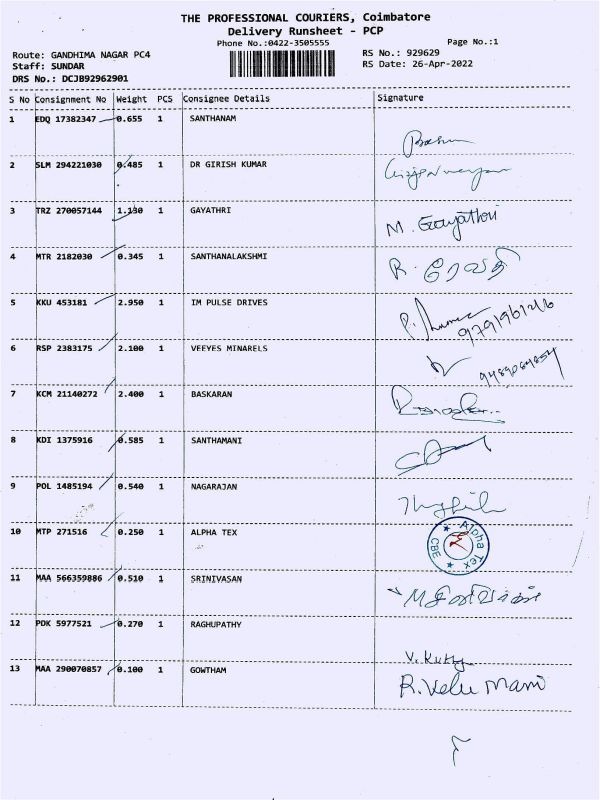 THE PROFESSIONAL COURIERS, Coimbatore
Delivery Runsheet - PCP
Phone No.:0422-3505555
Page No.:1
Route: GANDHIMA NAGAR PC4
RS No.: 929629
Staff: SUNDAR
RS Date: 26-Apr-2022
DRS No.: DCJB92962901
S No Consignment No Weight PCS Consignee Details Signature
1 EDQ 17382347 0.655 1 SANTHANAM
2 SLM 294221030 0.485 1 DR GIRISH KUMAR
3 TRZ 270057144 1.130 1 GAYATHRI M. Gayathri
4 MTR 2182030 0.345 1 SANTHANALAKSHMI R. ரேவதி
5 KKU 453181 2.950 1 IM PULSE DRIVES
6 RSP 2383175 2.100 1 VEEYES MINARELS
7 KCM 21140272 2.400 1 BASKARAN
8 KDI 1375916 0.585 1 SANTHAMANI
9 POL 1485194 0.540 1 NAGARAJAN
10 MTP 271516 0.250 1 ALPHA TEX Alpha Tex CBE
11 MAA 566359886 0.510 1 SRINIVASAN
12 PDK 5977521 0.270 1 RAGHUPATHY V. Kutty
13 MAA 290070857 0.100 1 GOWTHAM R. Velu Mani